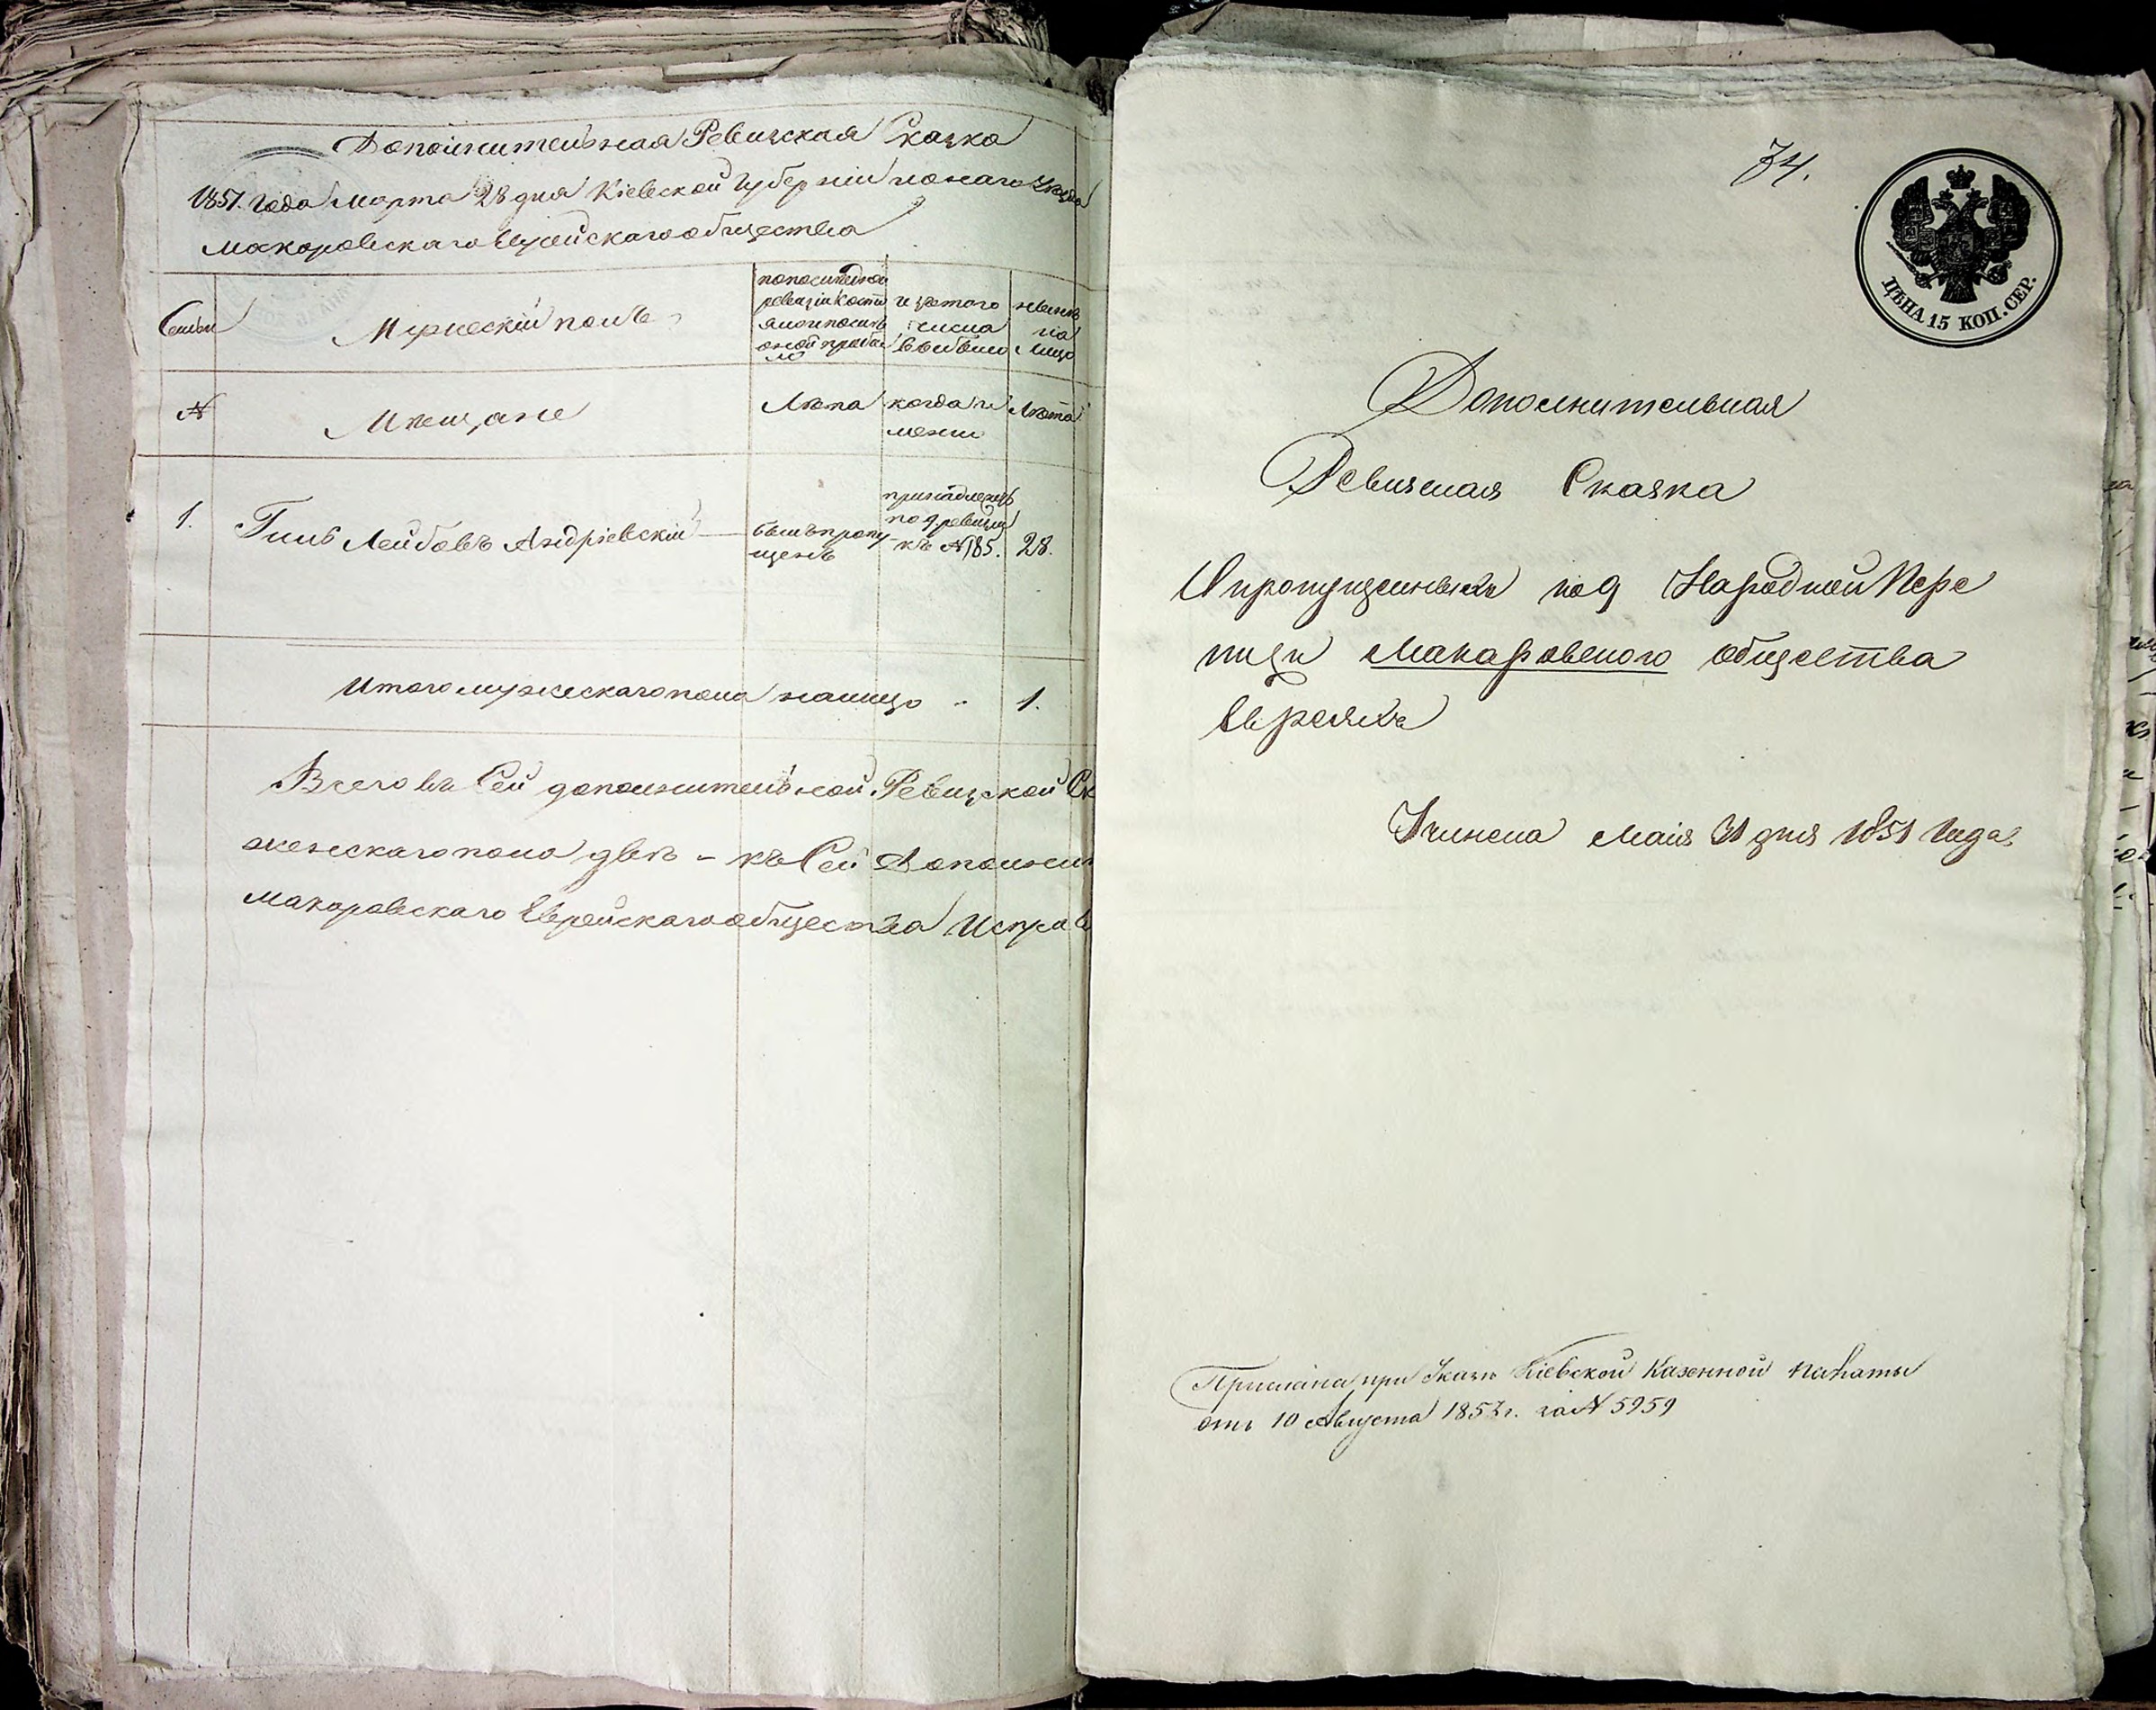 Дополнительная Ревизская Сказка
1851 года Марта 28 дня Кіевской Губерніи тогожъ Уезда
Макоровскаго Еврейскаго общества
Семьи
Мужескій полъ
по последней
ревизіи состо
яло и послѣ
оной прибы
ло
изъ того
числа
выбыло
нынѣ
на
лицо
№
Мещане
Лѣта
когда и
Лѣта
1.
Гиль Лейбовъ Андріевскій
былъ пропу
щенъ
принадлежитъ
по 9 ревизіи
къ № 185.
28.
Итого мужескаго пола налицо
1.
Всего въ Сей дополнительной Ревизской Ск
женскаго пола двѣ - къ Сей Дополнит
Макоровскаго Еврейскаго общества Исправ
74.
ЦѢНА 15 КОП. СЕР.
Дополнительная
Ревизская Сказка
О пропущенныхъ по 9 Народной Пере
писи Макаровского общества
Евреяхъ
Учинена Маія 31 дня 1851 года
Прислана при Указѣ Кіевской Казенной Палаты
отъ 10 Августа 1851 г. за № 5959